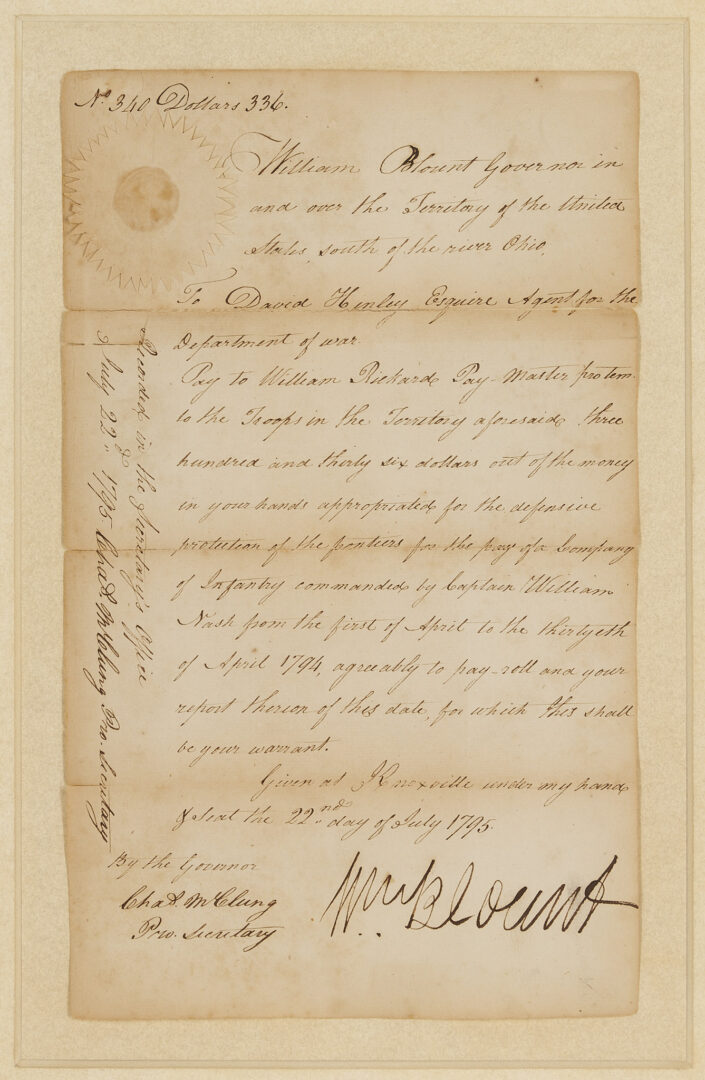 No. 340 Dollars 336.
William Blount Governor in
and over the Territory of the United
States, south of the river Ohio,
To David Henley Esquire Agent for the
Department of war.
Pay to William Rickard Pay-Master protem.
to the Troops in the Territory aforesaid three
hundred and thirty six dollars out of the money
in your hands appropriated for the defensive
protection of the frontiers for the pay of a Company
of Infantry commanded by Captain William
Nash from the first of April to the thirtyeth
of April 1794, agreeably to pay-roll and your
report thereon of this date, for which this shall
be your warrant.
Given at Knoxville under my hand
& Seal the 22nd day of July 1795.
By the Governor
Chas. McClung
Pro. Secretary
Wm. Blount
Recorded in the Secretary's Office
July 22d. 1795 Chas. McClung Pro. Secretary